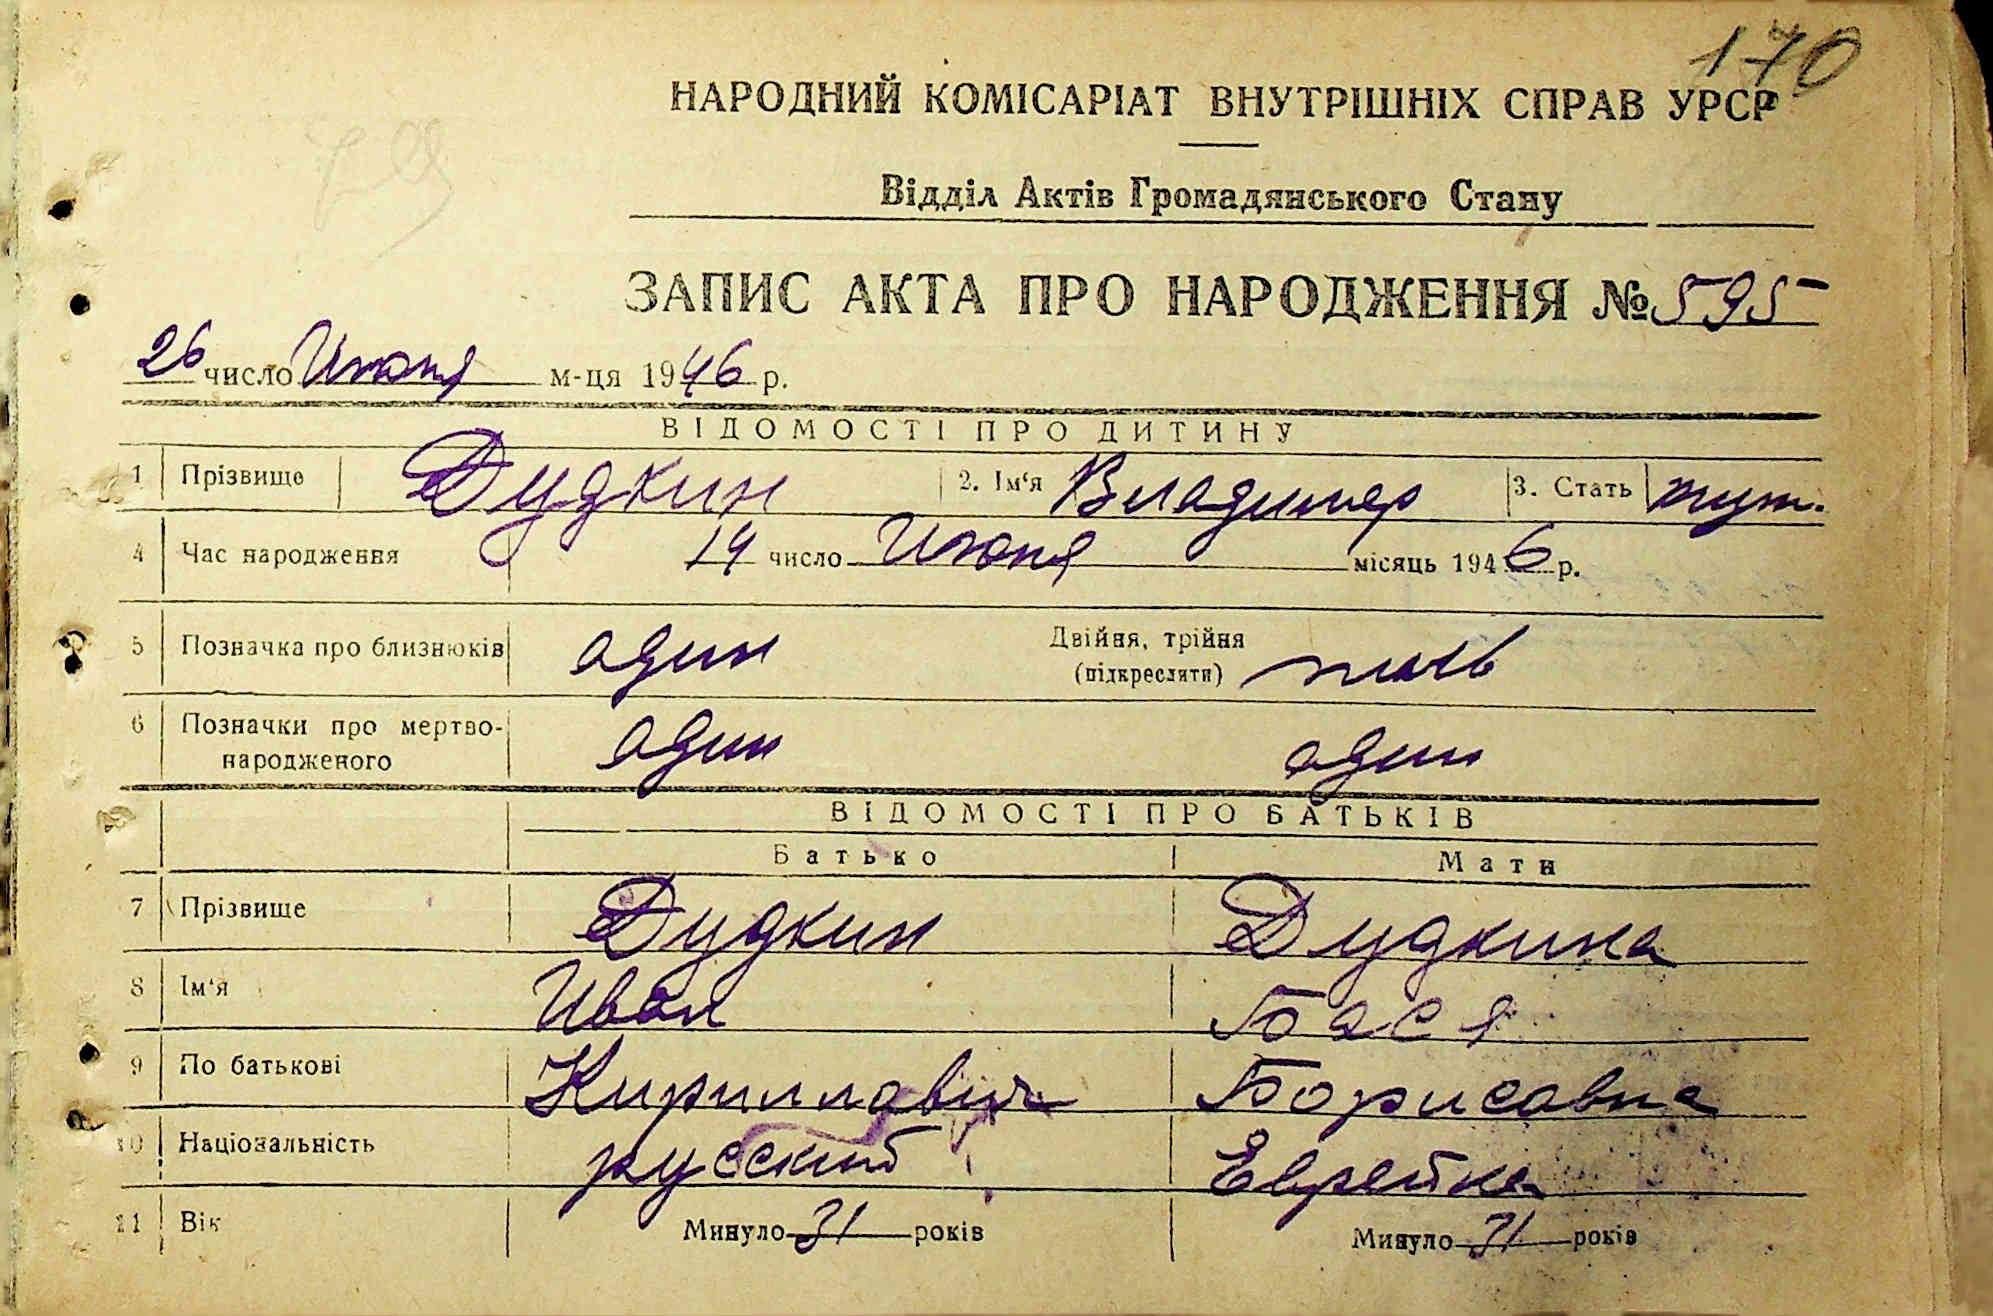 170
НАРОДНИЙ КОМІСАРІАТ ВНУТРІШНІХ СПРАВ УРСР
Відділ Актів Громадянського Стану
ЗАПИС АКТА ПРО НАРОДЖЕННЯ № 595
26 число Июня м-ця 1946 р.
ВІДОМОСТІ ПРО ДИТИНУ
1 Прізвище Дудкин 2. Ім'я Владимер 3. Стать муж.
4 Час народження 14 число Июня місяць 1946 р.
5 Позначка про близнюків один Двійня, трійня
(підкреслити)
6 Позначки про мертво- один один
народженого
ВІДОМОСТІ ПРО БАТЬКІВ
Батько Мати
7 Прізвище Дудкин Дудкина
8 Ім'я Иван Бася
9 По батькові Кириллавич Борисавна
10 Національність русский Еврейка
11 Вік Минуло 31 років Минуло 31 років